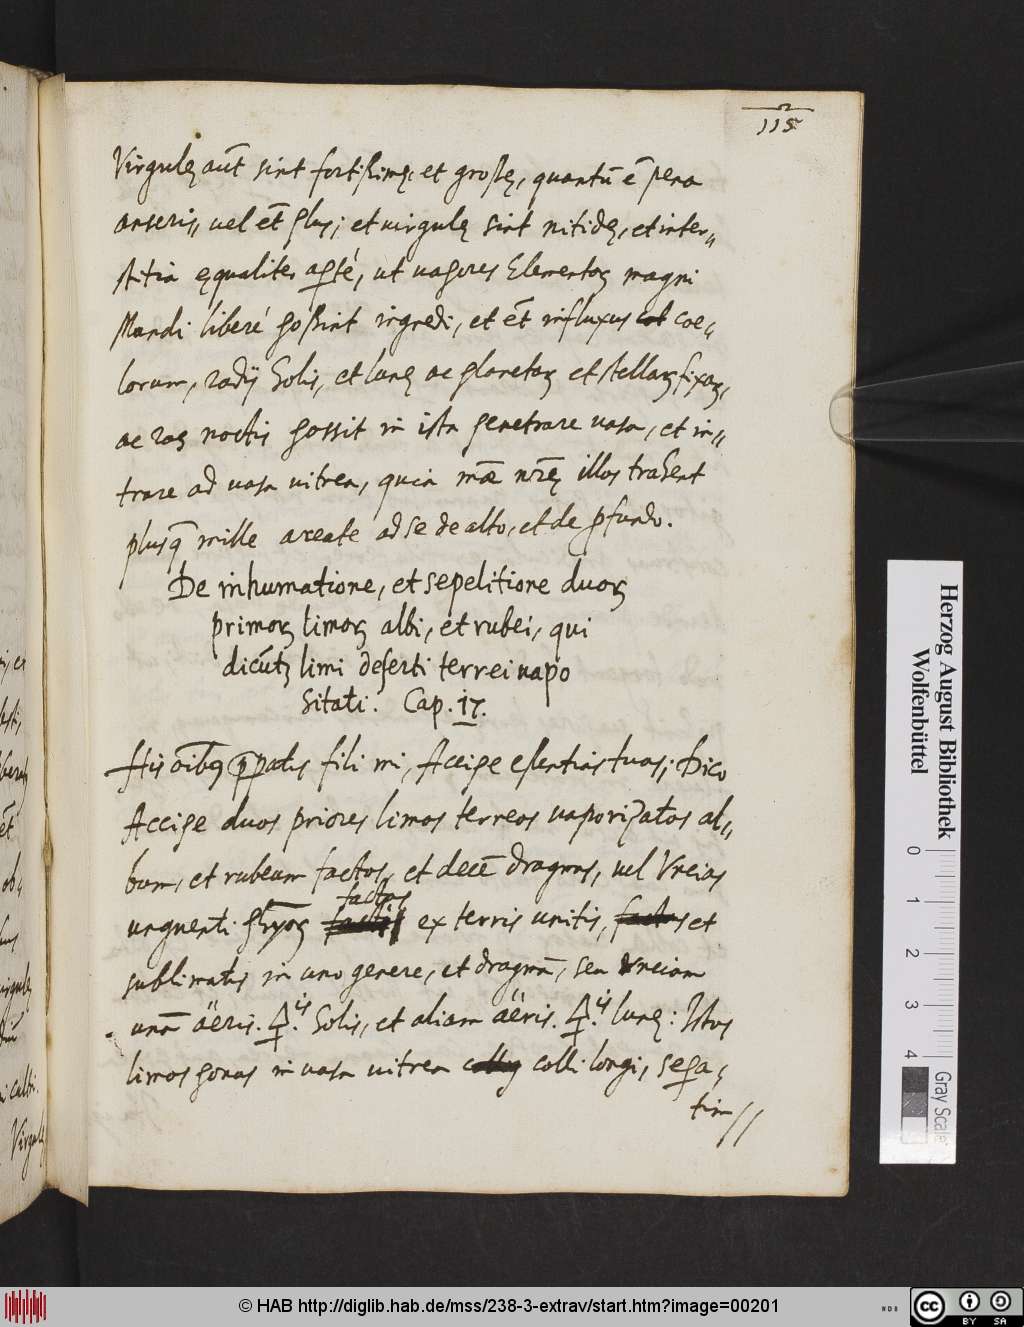 115
Virgulę aut̄ sint fortissimę, et grossę, quantū ē pena
anseris, uel et̄ plus; et uirgulę sint nitidę, et inter„
stitia ęqualiter apté, ut uapores Elementoꝝ magni
Mundi liberé possint ingredi, et et̄ influxus coe„
lorum, radij Solis, et lunę ac planetaꝝ et stellaꝝ fixaꝝ,
ac ros noctis possit in ista penetrare uasa, et in„
trare ad uasa uitrea, quia nr̄ę illos trahent
plusq̄ mille ad se de alto, et de ꝓfundo.
De inhumatione, et sepelitione duoꝝ
primoꝝ limoꝝ albi, et rubei, qui
dicūtꝝ limi deserti terrei uapo
sitati. Cap. 17.
His oībꝰ ꝓpatis fili mi, Accipe essentias tuas; Dico
Accipe duos priores limos terreos uaporizatos al„
bum, et rubeum factos, et decē dragmas, uel Vncias
unguenti factos ex terris unitis, et
sublimatis in uno genere, et dragmā, seu vnciam
unā aëris. Solis, et aliam aëris. lunę: Istos
limos ponas in uasa uitrea colli longi, sepa„
tim//
Herzog August Bibliothek
Wolfenbüttel
0 1 2 3 4
Gray Scale
© HAB http://diglib.hab.de/mss/238-3-extrav/start.htm?image=00201
cc BY SA